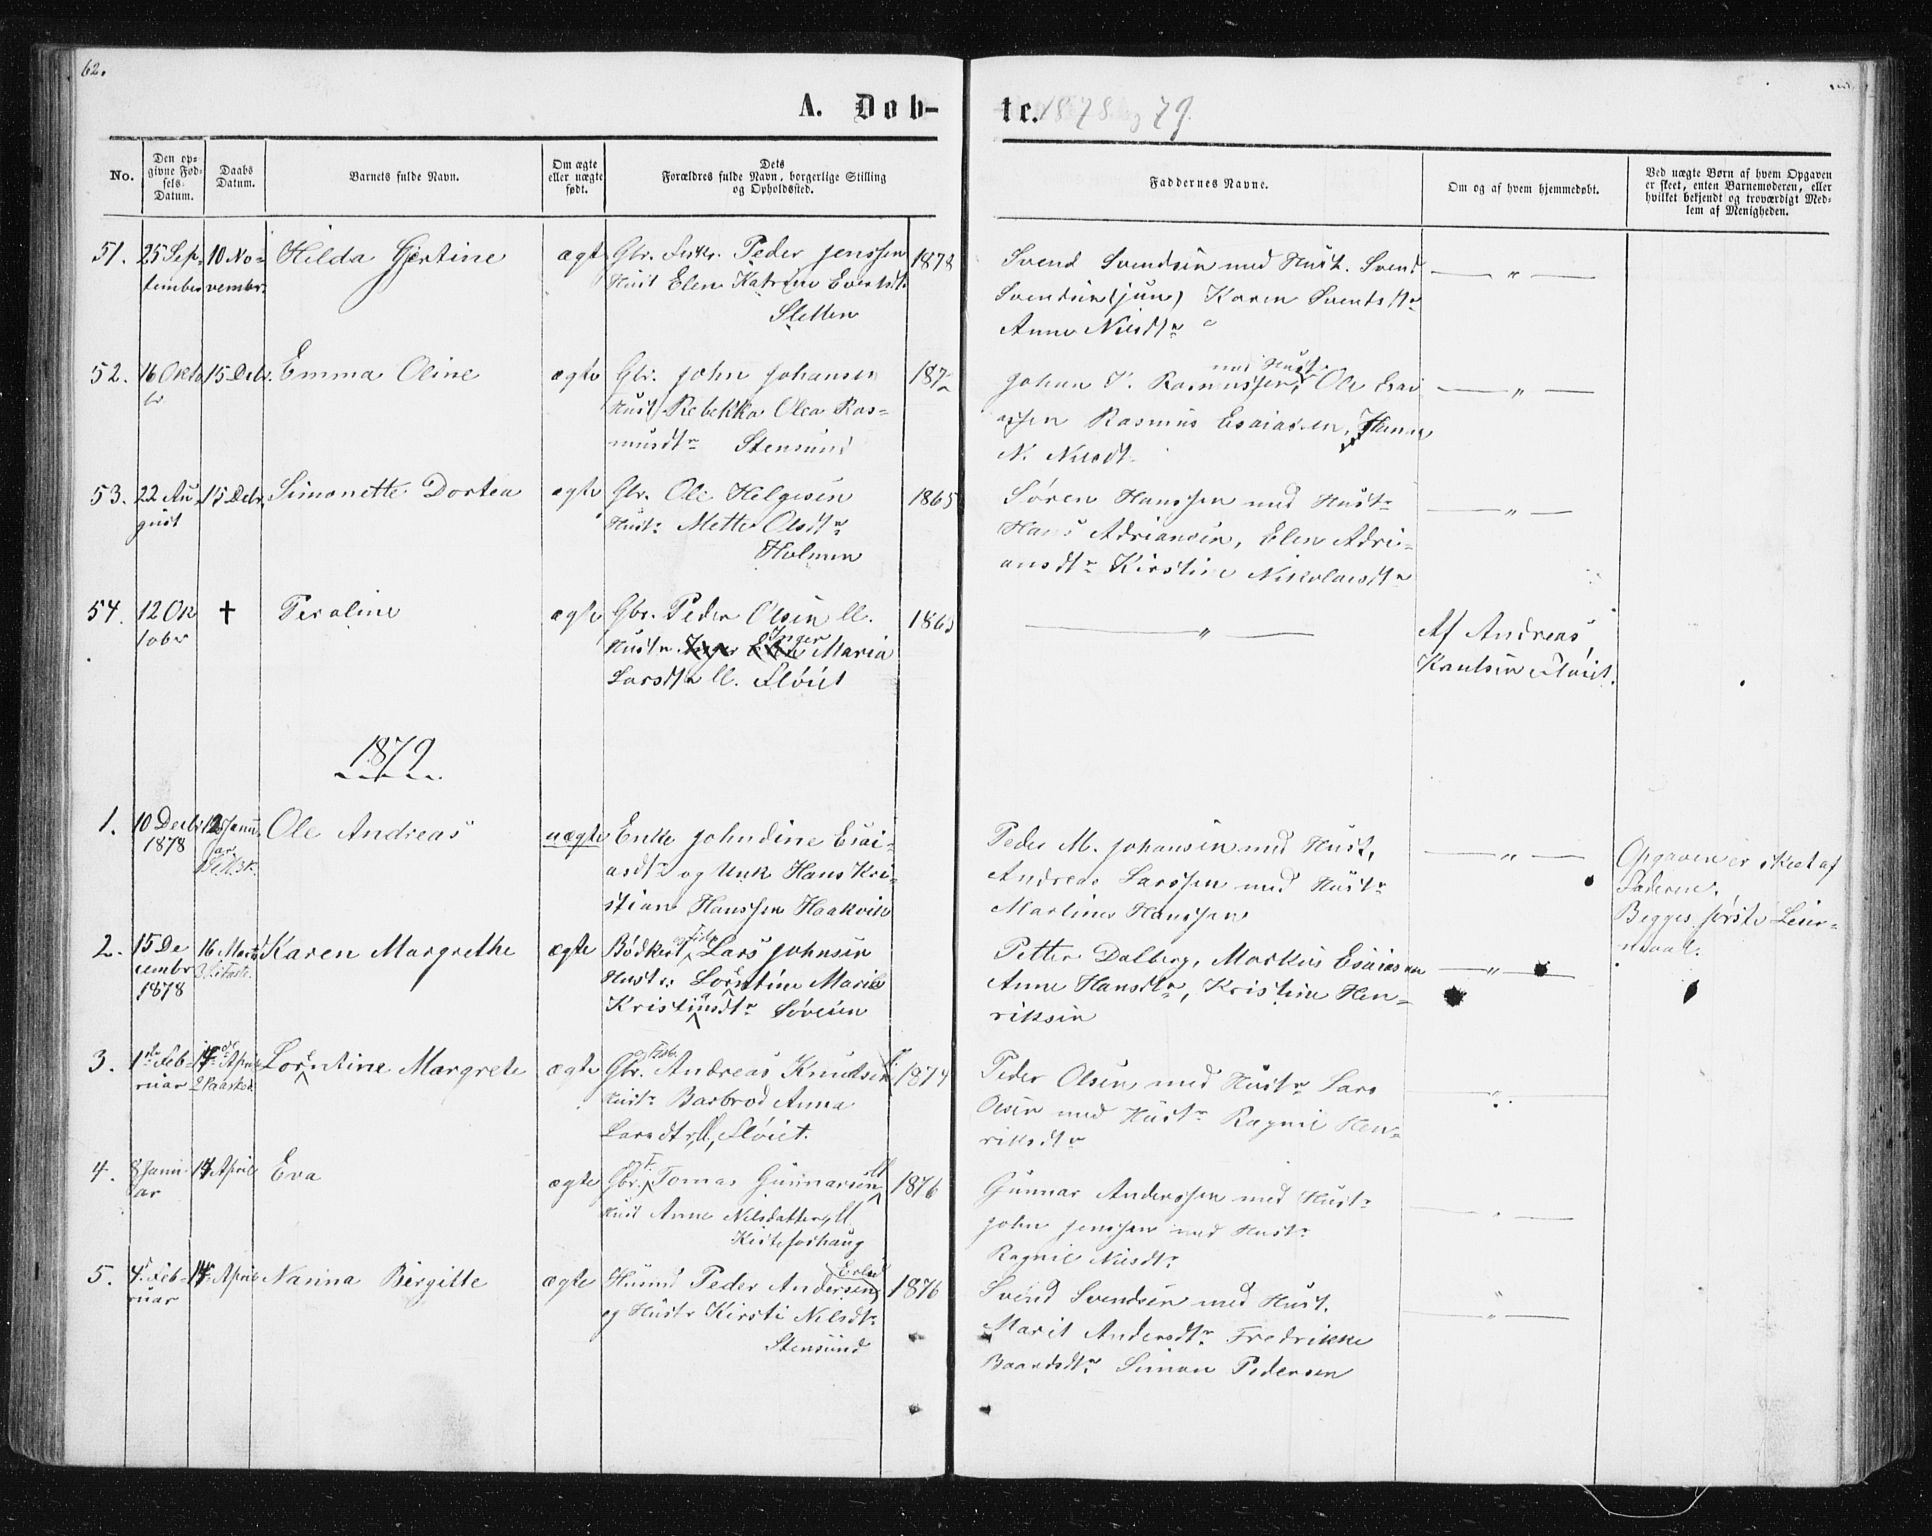 62.
A. Døb-
te. 1878 og 79.
No.
Den op-
givne Fød-
sels-
Datum.
Daabs
Datum.
Barnets fulde Navn.
Om ægte
eller uægte
født.
Dets
Forældres fulde Navn, borgerlige Stilling
og Opholdssted.
Faddernes Navne.
Om og af hvem hjemmedøbt.
Ved uægte Børn af hvem Opgaven
er skeet, enten Barnemoderen, eller
hvilket bekjendt og troværdigt Med-
lem af Menigheden.
51. 25 Sep- 10 No- Hilda Gjertine ægt Gbr. Fisker. Peder Jenssen 1878
tember vembr. Hust Elen Katrine
Sletten
Svend Svendsen med Hust. Svend
Svendsen (jun) Karen Svendsdtr
Anne Nilsdtr
52. 16 Okto 15 Debr. Emma Oline ægte Gbr. John Johansen
br Hust Rebekka Olea Ras-
musdtr Stensund
med Hustr
Johan Rasmussen, Ole Esai
assen Rasmus Esaiassen,
N. Nilsdtr
53. 22 Au- 15 Debr. Simonette Dortea ægte Gbr. Ole Helgesen 1865
gust Hustr. Mette Olsdtr
Holmen
Søren Hanssen med Hustr
Hans Adriansen, Elen Adri-
ansdtr Kirstine Nikolaisdtr
54. 12 Ok ✝ Peroline ægte Gbr. Peder Olsen ll. 1865
tober Hustr Inger Maria
Larsdtr ll. Fløiet
Af Andreas
Knutsen Fløiet.
1879
1. 10 Debr 12 Janu- Ole Andreas uægte Enke Johndine Esai-
1878 ar asdtr og Unk Hans Kri-
stian Hanssen Haakvik
Peder M. Johansen med Hust,
Andreas Larssen med Hustr
Martinus Hanssen
Opgaven er skeet af
Faderen.
Begges første Leier-
maal.
2. 15 De 16 Marts Karen Margrethe ægte Bødker og Fisker Lars Johnsen
cembr 3 S i Faste. Hustr. Lorentine Marie
1878 Kristiansdtr Søveien
Petter Dalberg, Markus Esaiasen
Anne Hansdtr, Kristine Hen-
riksen
3. 1ste Feb- 14de April Lorentine Margrete ægte Gbr. og Fisk. Andreas Knudsen 1874
ruar 2 Paaskd. Hustr Barbro Anna
Larsdtr, ll, Fløiet.
Peder Olsen med Hustr Lars
Olsen med Hustr Ragnil Hen-
riksdtr
4. 8 Janu- 14 April Eva ægte Gbr. og F. Tomas Gunnarsen ll 1876
ar Hust Anne Nilsdatter, ll
Gunnar Anderssen med Hustr
John Jenssen med Hustr
Ragnil Nilsdtr
5. 4 Feb- 14 April Narina Birgitte ægte Husmd Peder Andersen 1876
ruar og Hustr Kirsti Nilsdtr
Stensund
Svend Svendsen med Hust.
Marit Andersdtr Fredrikke
Baardsdtr Simon Pedersen